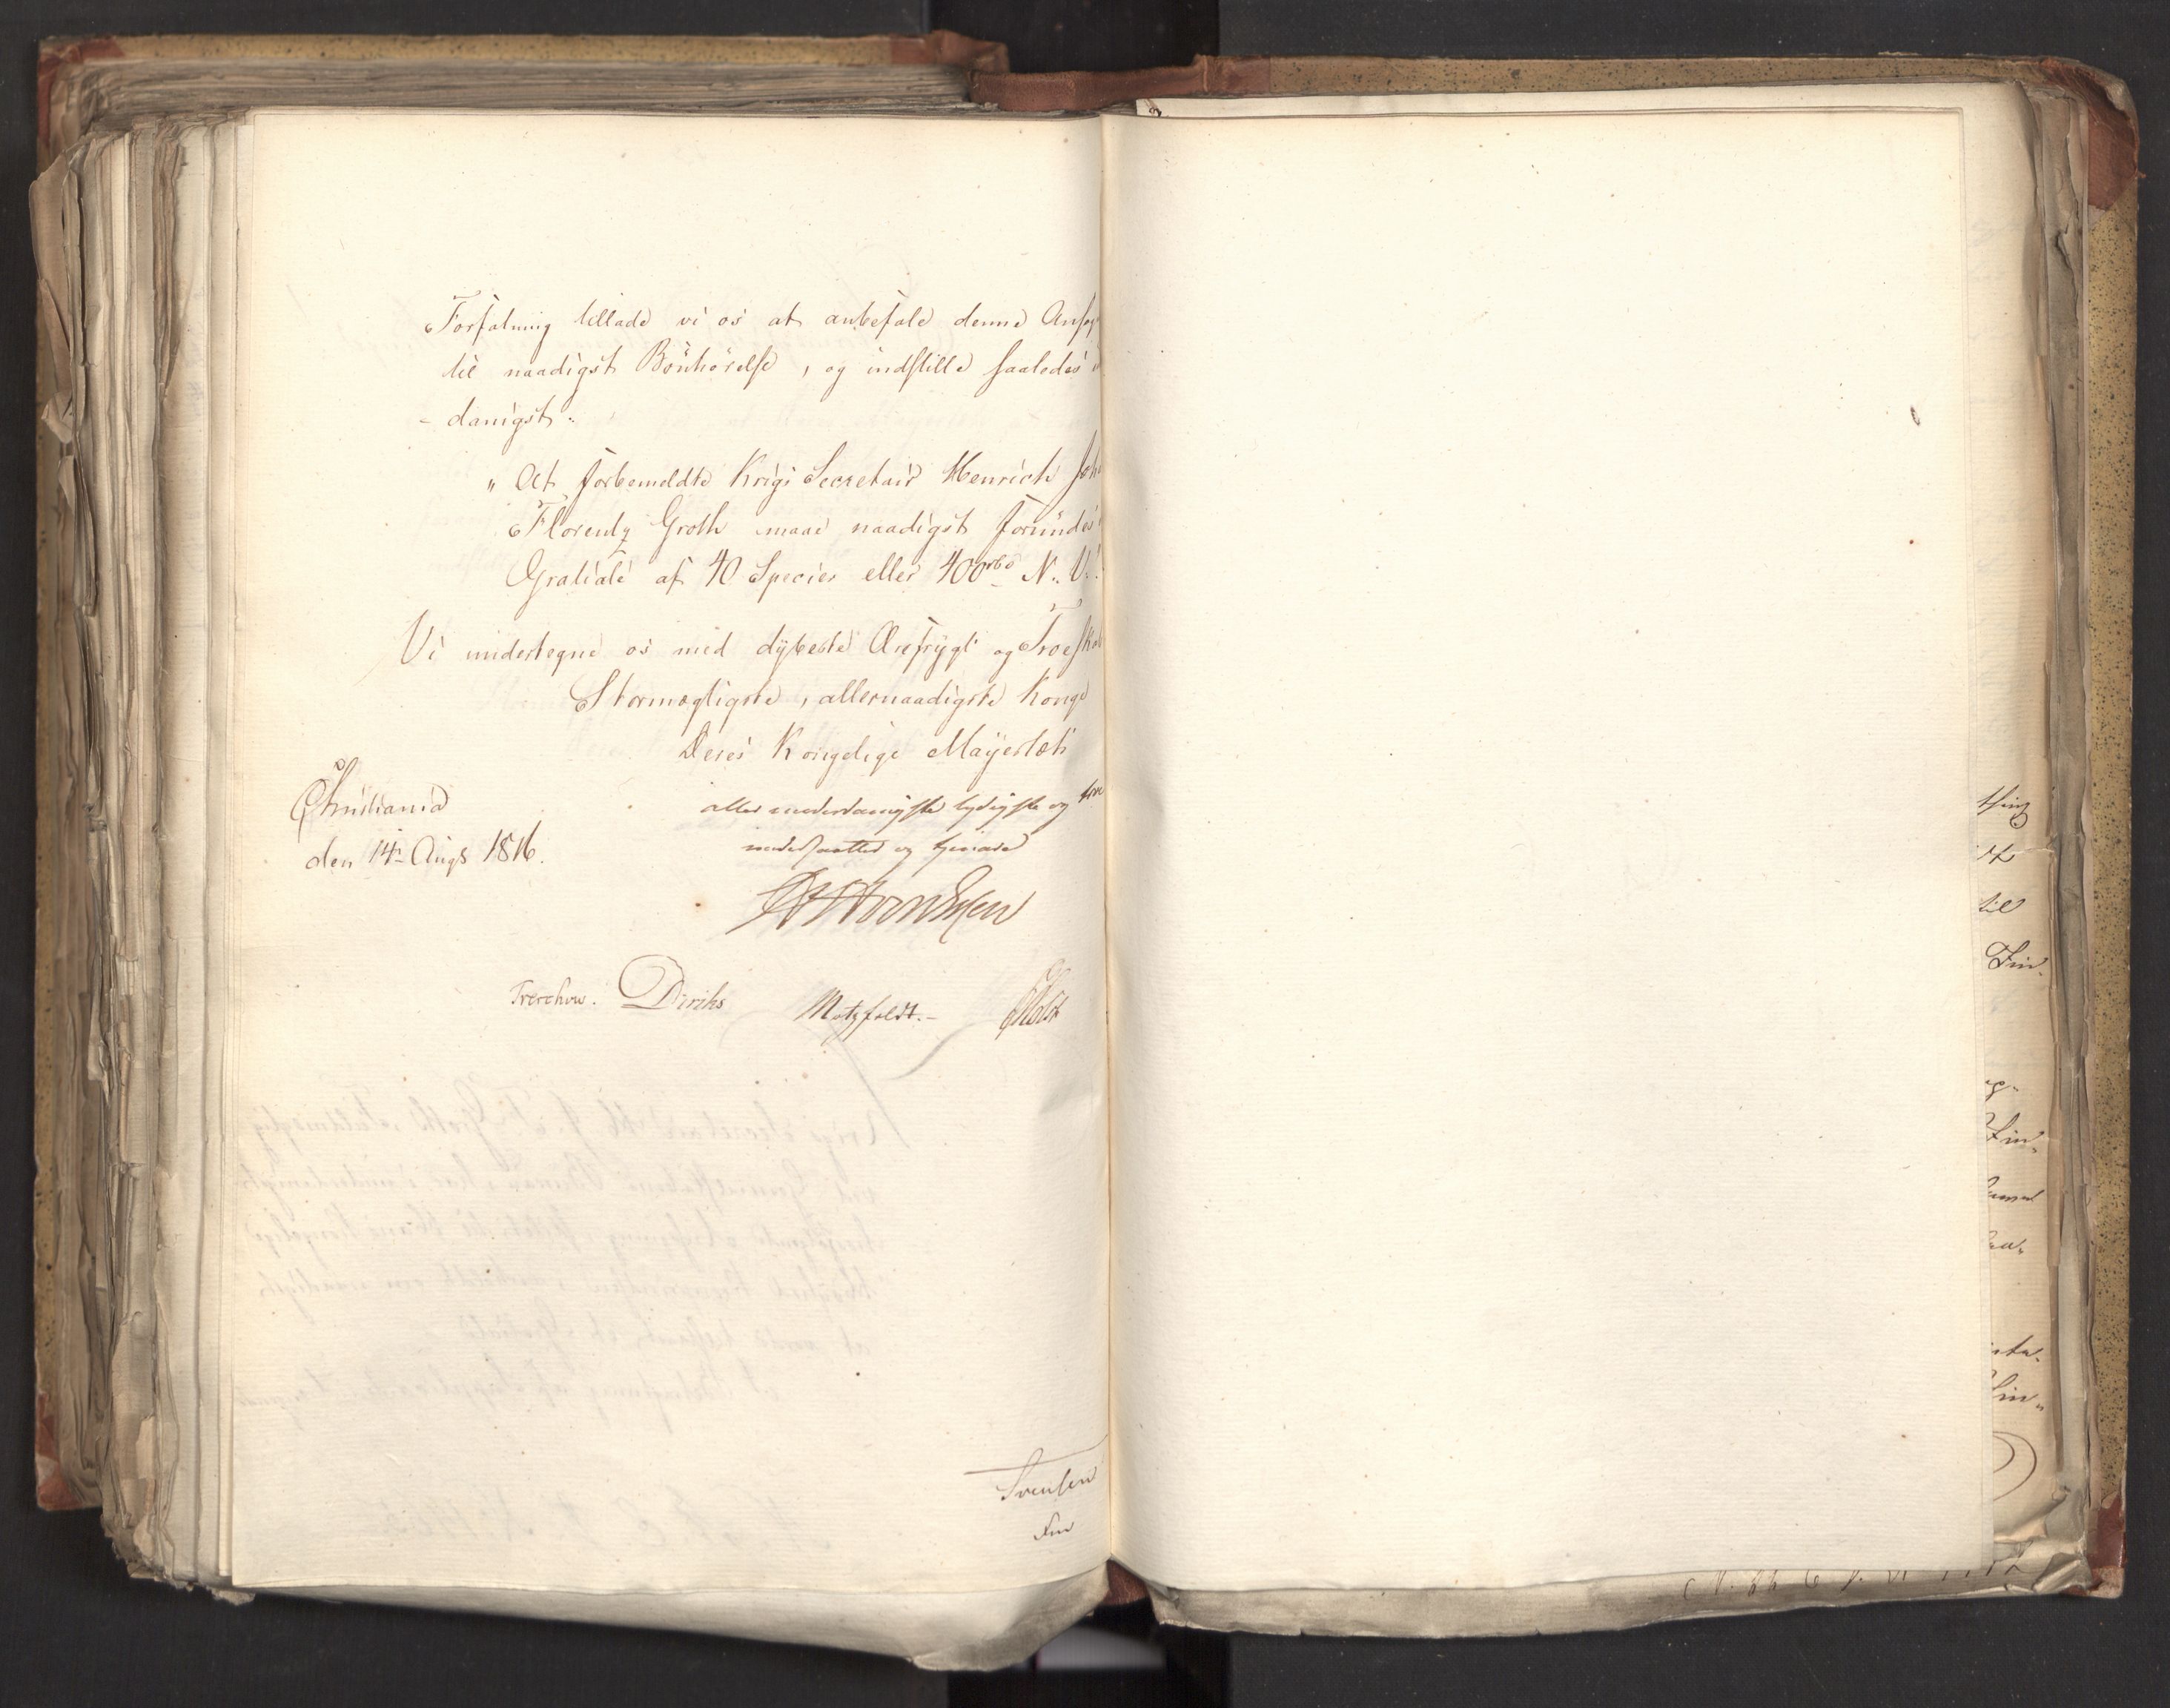 Forfatning tillade vi os at anbefale denne Ansøg
til naadigst Bönhörelse, og indstille saaledes
- danigst:
" At forbemeldte Krigs Secretair Henrich Joh
Florentz Groth maae naadigst forundes
Gratiale af 40 Species eller 400 rbd N. V.
Vi undertegne os med dybeste Ærefrygt og Troeska
Stormægtigste, allernaadigste Konge
Deres Kongelige Mayestæts
Christiania
den 14 Augs 1816.
allerunderdanigste lydigste og tro
undersaatter og tjenere
Treschow. Diriks Motzfeldt.- Holst
Svensen
thing
til
Fin-